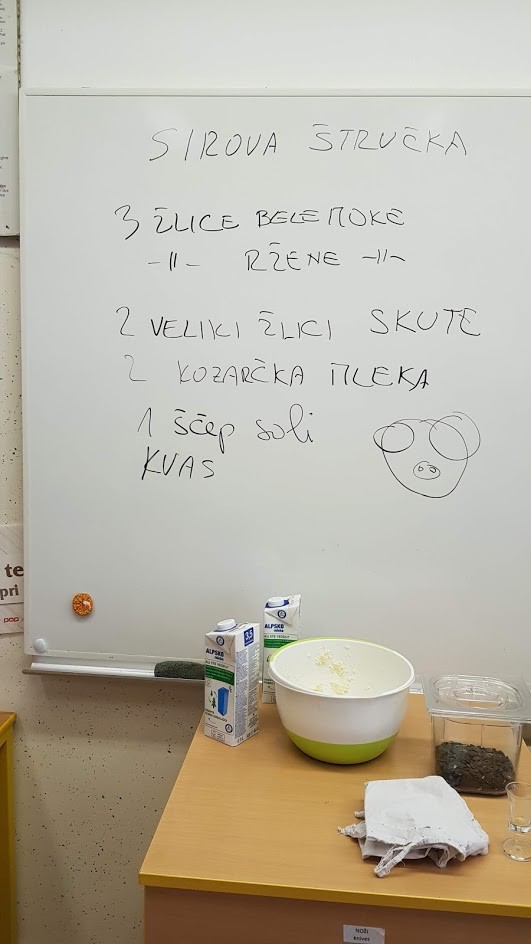 SIROVA ŠTRUČKA
3 ŽLICE BELE MOKE
-||- RŽENE -||-
2 VELIKI ŽLICI SKUTE
2 KOZARČKA MLEKA
1 ščep soli
KVAS
te
pri
pop
ALPSKO
3,5
ALPSKO
NOŽI
knives